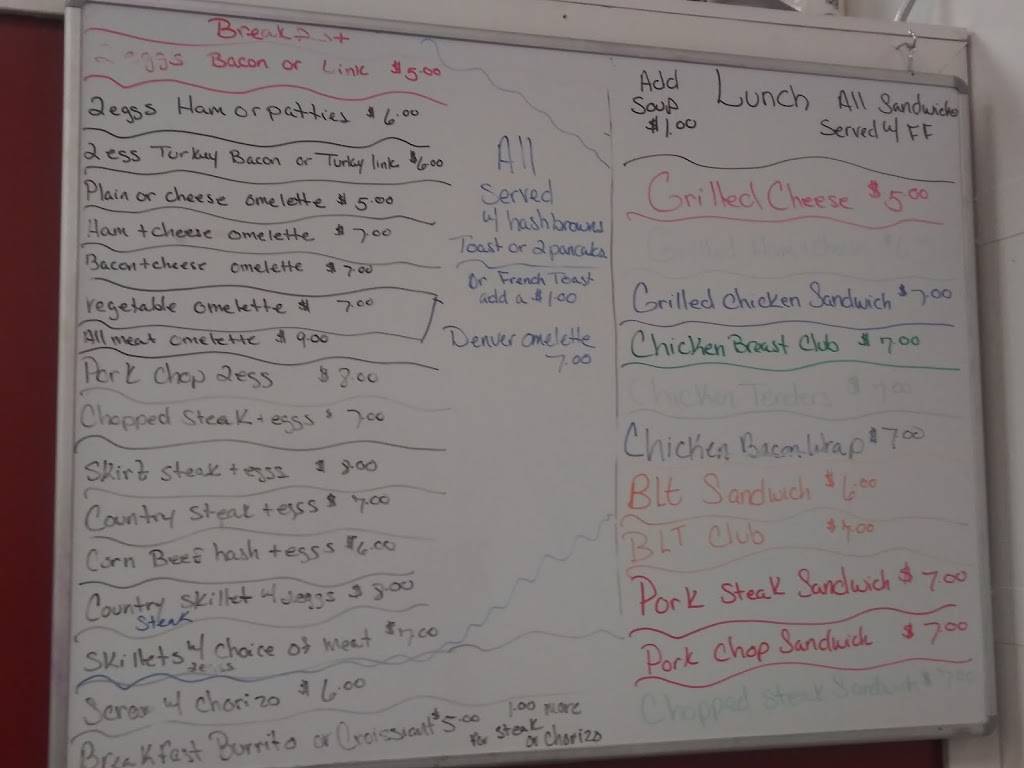 Breakfast
eggs Bacon or Link $5.00
2eggs Ham or patties $6.00
2 egs Turkuy Bacon or Turky link $6.00
Plain or cheese omelette $5.00
Ham + cheese omelette $7.00
Bacon + cheese omelette $7.00
vegetable omelette $7.00
All meat omelette $9.00
Pork Chop 2 egg $8.00
Chopped Steak + eggs $7.00
Skirt steak + eggs $8.00
Country Steak + eggs $7.00
Corn Beef hash + eggs $6.00
Country Skillet w/ 2 eggs $8.00
Steak
Skillets w/ choice of meat $7.00
2eggs
w/ Chorizo $6.00
Breakfast Burrito or Croissiant $5.00
1.00 more
for Steak
or Chorizo
All
Served
w/ hashbrowns
Toast or 2 pancaks
Or French Toast
add a $1.00
Denver omelette
7.00
Add
Soup
$1.00
Lunch
All Sandwiches
Served w/ FF
Grilled Cheese $5.00
Grilled Ham + cheese
Grilled Chicken Sandwich $7.00
Chicken Breast Club $7.00
Chicken Tenders $7.00
Chicken Bacon Wrap $7.00
Blt Sandwich $6.00
BLT Club $7.00
Pork Steak Sandwich $7.00
Pork Chop Sandwich $7.00
Chopped Steak Sandwich $7.00